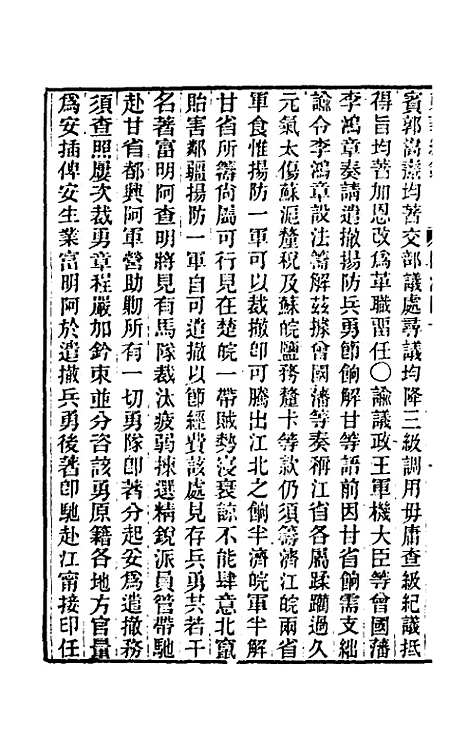 賓郭嵩燾均著交部議處尋議均降三級調用毋庸查級紀議抵
得旨均著加恩改爲革職畱任○諭議政王軍機大臣等曾國藩
李鴻章奏請遣撤揚防兵勇節餉解甘等語前因甘省餉需支絀
諭令李鴻章設法籌解茲據曾國藩等奏稱江省各屬蹂躪過久
元氣太傷蘇滬釐稅及蘇皖鹽務釐卡等款仍須籌濟江皖兩省
軍食惟揚防一軍可以裁撤卽可騰出江北之餉半濟皖軍半解
甘省所籌尙屬可行見在楚皖一帶賊勢寖衰諒不能肆意北竄
貽害鄰疆揚防一軍自可遣撤以節經費該處見存兵勇共若干
名著富明阿查明將見有馬隊裁汰疲弱揀選精銳派員管帶馳
赴甘省都興阿軍營助勦所有一切勇隊卽著分起妥爲遣撤務
須查照屢次裁勇章程嚴加鈐束並分咨該勇原籍各地方官量
爲安插俾安生業富明阿於遣撤兵勇後著卽馳赴江甯接印任